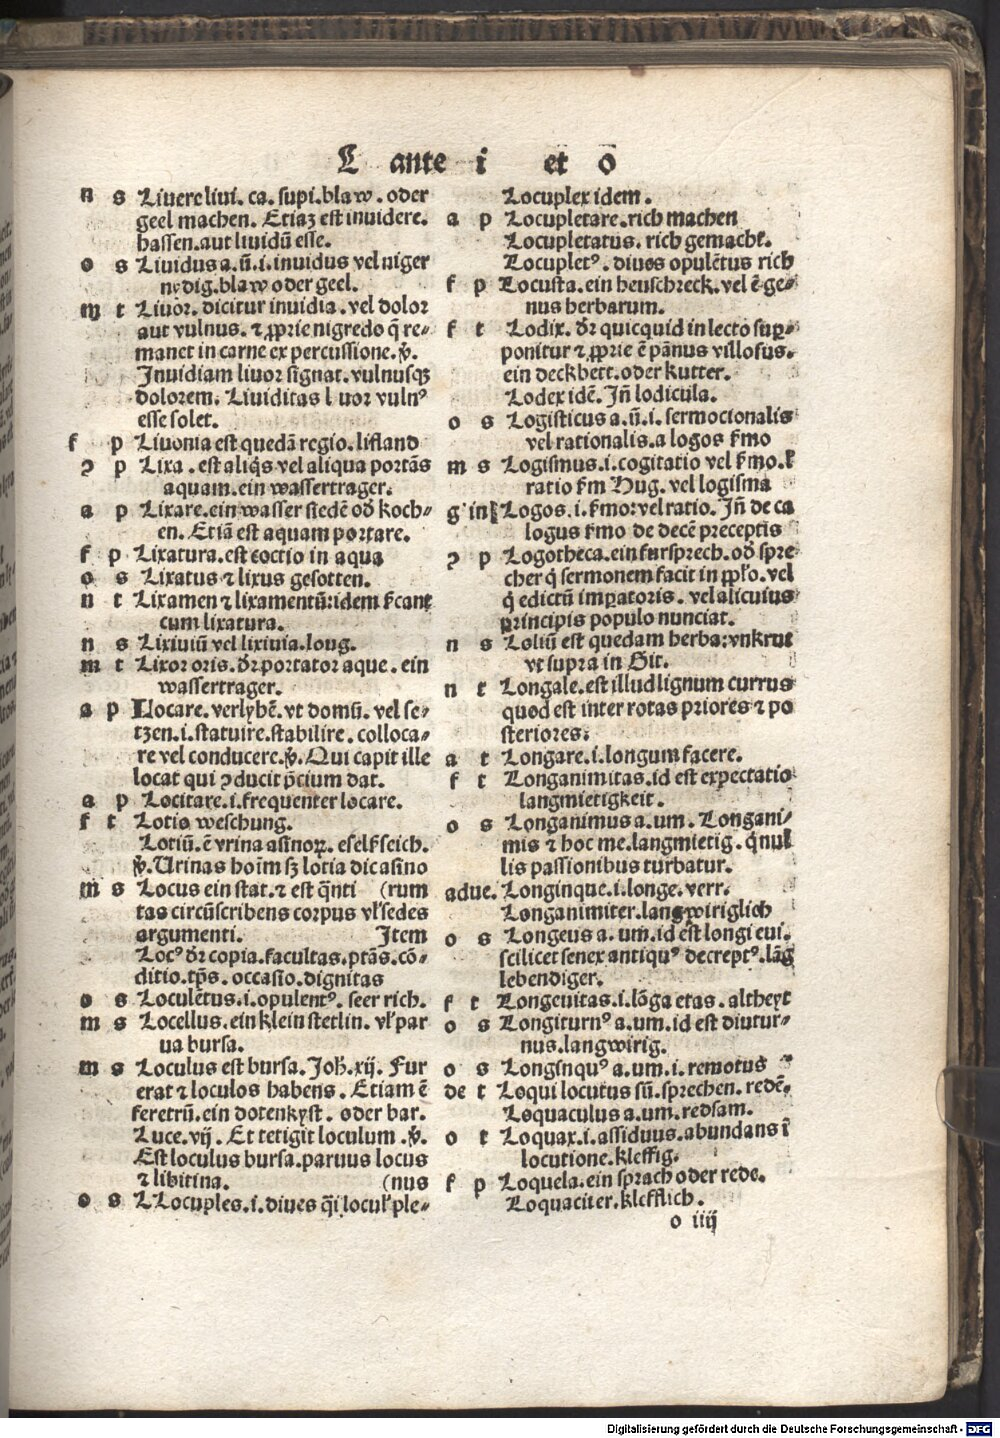 L ante i et o
n s Liuere liui. ca. supi. blaw. oder
geel machen. Etiaʒ est inuidere.
hassen. aut liuidū esse.
o s Liuidus a. ū. i. inuidus vel niger
nydig. blaw oder geel.
m t Liuor. dicitur inuidia. vel dolor
aut vulnus. ⁊ ꝓprie nigredo q̄ re⸗
manet in carne ex percussione. ꝟ.
Inuidiam liuor signat. vulnusqʒ
dolorem. Liuiditas l uor vulnꝰ
esse solet.
f p Liuonia est quedā regio. lifland
ꝯ p Lixa. est aliq̇s vel aliqua portās
aquam. ein wassertrager.
a p Lixare. ein wasser siedē oď koch⸗
en. Etiā est aquam portare.
f p Lixatura. est coctio in aqua
o s Lixatus ⁊ lixus gesotten.
n t Lixamen ⁊ lixamentū: idem ſcant
cum lixatura.
n s Lixiuiū vel lixiuia. loug.
m t Lixor oris. ďr portator aque. ein
wassertrager.
a p LLocare. verlyhē. vt domū. vel se⸗
tzen. i. statuire. stabilire. colloca⸗
re vel conducere. ꝟ. Qui capit ille
locat qui ꝯducit p̄cium dat.
a p Locitare. i. frequenter locare.
f t Lotio weschung.
Lotiū. ē vrina asinoꝝ. eselſ seich.
ꝟ. Urinas hoīm sʒ lotia dic asino
m s Locus ein stat. ⁊ est q̄nti (rum
tas circūscribens corpus vľ sedes
argumenti. Item
Locꝰ ďr copia. facultas. ptās. cō⸗
ditio. tp̄s. occasio. dignitas
o s Loculētus. i. opulentꝰ. seer rich.
m s Locellus. ein klein stetlin. vľ par
ua bursa.
m s Loculus est bursa. Joh. xij. Fur
erat ⁊ loculos habens. Etiam ē
feretrū. ein dotenkyst. oder bar.
Luce. vij. Et tetigit loculum. ꝟ.
Est loculus bursa. paruus locus
⁊ libitina. (nus
o s LLocuples. i. diues q̄i locuľ ple⸗
Locuplex idem.
a p Locupletare. rich machen
Locupletatus. rich gemacht.
Locupletꝰ. diues opulētus rich
f p Locusta. ein heuschreck. vel ē ge⸗
nus herbarum.
f t Lodix. ďr quicquid in lecto suꝑ⸗
ponitur ⁊ ꝓprie ē pānus villosus.
ein deckbett. oder kutter.
Lodex idē. Jn̄ lodicula.
o s Logisticus a. ū. i. sermocionalis
vel rationalis. a logos ẜmo
m s Logismus. i. cogitatio vel ẜmo. ľ
ratio ẜm Hug. vel logisma
g' in Logos. i. ẜmo: vel ratio. Jn̄ de ca
logus ẜmo de decē preceptis
ꝯ p Logotheca. ein fursprech. oď spre
cher q̇ sermonem facit in ppľo. vel
q̇ edictū imꝑatoris. vel alicuius
principis populo nunciat.
n s Loliū est quedam herba: vnkrut
vt supra in Git.
n t Longale. est illud lignum currus
quod est inter rotas priores ⁊ po
steriores.
a t Longare. i. longum facere.
f t Longanimitas. id est expectatio
langmietigkeit.
o s Longanimus a. um. Longani⸗
mis ⁊ hoc me. langmietig. q̇ nul
lis passionibus turbatur.
adue. Longinque. i. longe. verr.
Longanimiter. langwiriglich
o s Longeus a. um. id est longi eui.
scilicet senex antiquꝰ decreptꝰ. lāg
lebendiger.
f t Longeuitas. i. lōga etas. altheyt
o s Longiturnꝰ a. um. id est diutur⸗
nus. langwirig.
o s Longinquꝰ a. um. i. remotus
de t Loqui locutus sū. sprechen. redē.
Loquaculus a. um. redsam.
o t Loquax. i. assiduus. abundans ī
locutione. kleffig.
f p Loquela. ein sprach oder rede.
Loquaciter. klefflich.
o iiij
Digitalisierung gefördert durch die Deutsche Forschungsgemeinschaft - DFG